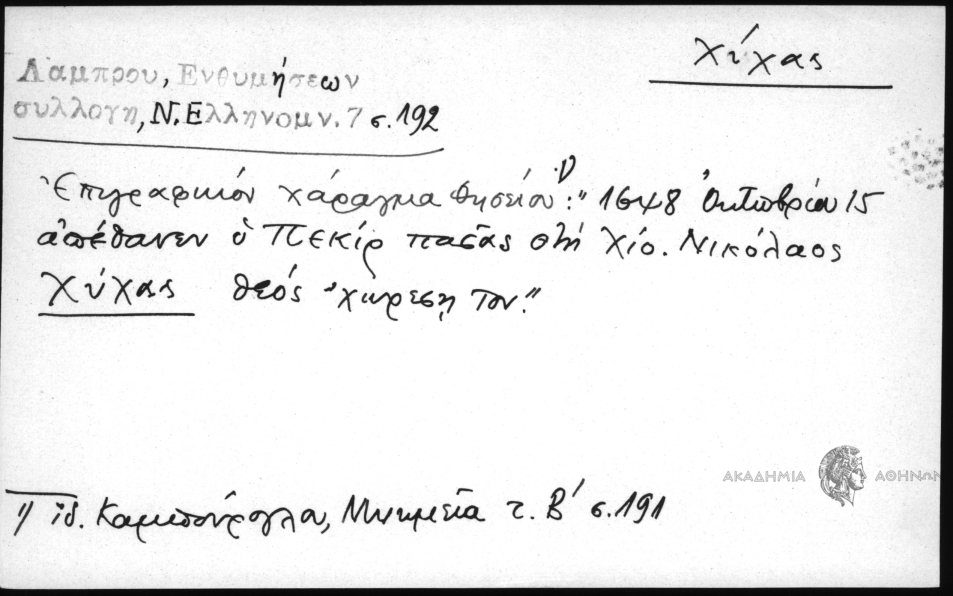 Χύχας
Λάμπρου, Ενθυμήσεων
συλλογη, Ν. Ελληνομν. 7 σ. 192
Ἐπιγραφικόν χάραγμα Θησείου ¹⁾: " 1648 Ὀκτωβρίου 15
ἀπέθανεν ὁ Πεκίρ πασᾶς στή Χίο. Νικόλαος
Χύχας θεός 'χωρεσῃ τον."
1) ἰδ. Καμπούρογλου, Μνημεῖα τ. Β' σ. 191
ΑΚΑΔΗΜΙΑ ΑΘΗΝΩΝ